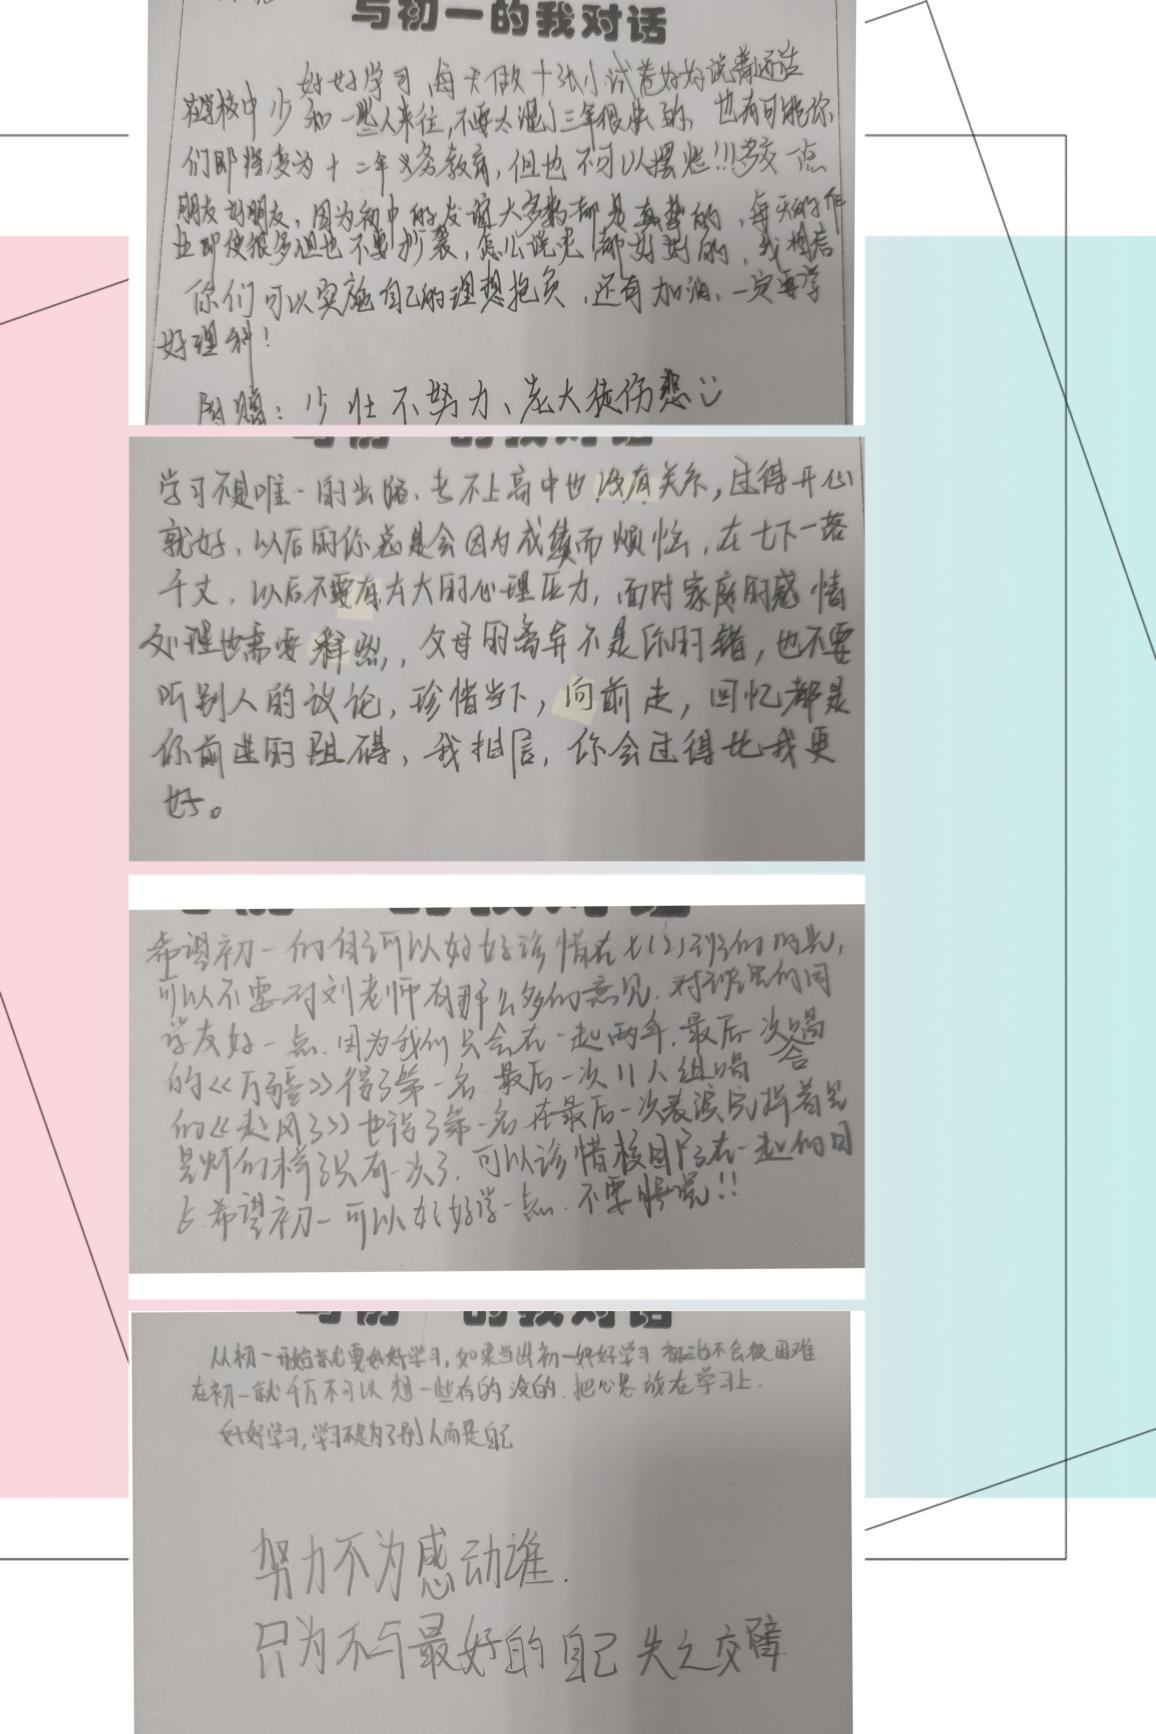 与初一的我对话
好好学习 每天做十张小试卷好好说普通话
在学校中少和一些人来往,不要太混了三年很快的,也有可能你
们即将变为十二年义务教育,但也不可以摆烂!!!多交一点
朋友好朋友,因为初中的友谊大多数都是真挚的,每天的作
业即使很多但也不要抄袭,怎么说呢都好好的,我相信
你们可以实施自己的理想抱负,还有加油,一定要学
好理科!
附赠:少壮不努力、老大徒伤悲
学习不是唯一的出路,考不上高中也没有关系,过得开心
就好,以后的你总是会因为成绩而烦恼,在七下一落
千丈,以后不要有太大的心理压力,面对家庭的感情
处理也需要释然,父母的离弃不是你的错,也不要
听别人的议论,珍惜当下,向前走,回忆都是
你前进的阻碍,我相信,你会过得比我更
好。
希望初一的自己可以好好珍惜在七(2)班的时光,
可以不要对刘老师有那么多的意见.对班里的同
学友好一点.因为我们只会在一起两年.最后一次合唱
的《万疆》得了第一名.最后一次11人组唱
的《起风了》也得了第一名在最后一次表演完
的样子只有一次了.可以珍惜校园 在一起的日
子希望初一可以好好学一点.不要 !!
从初一开始就要好好学习,如果当出初一好好学习 初二也不会很困难
在初一就千万不可以想一些有的没的.把心思放在学习上.
好好学习,学习不是为了别人而是自己
努力不为感动谁.
只为不与最好的自己失之交臂